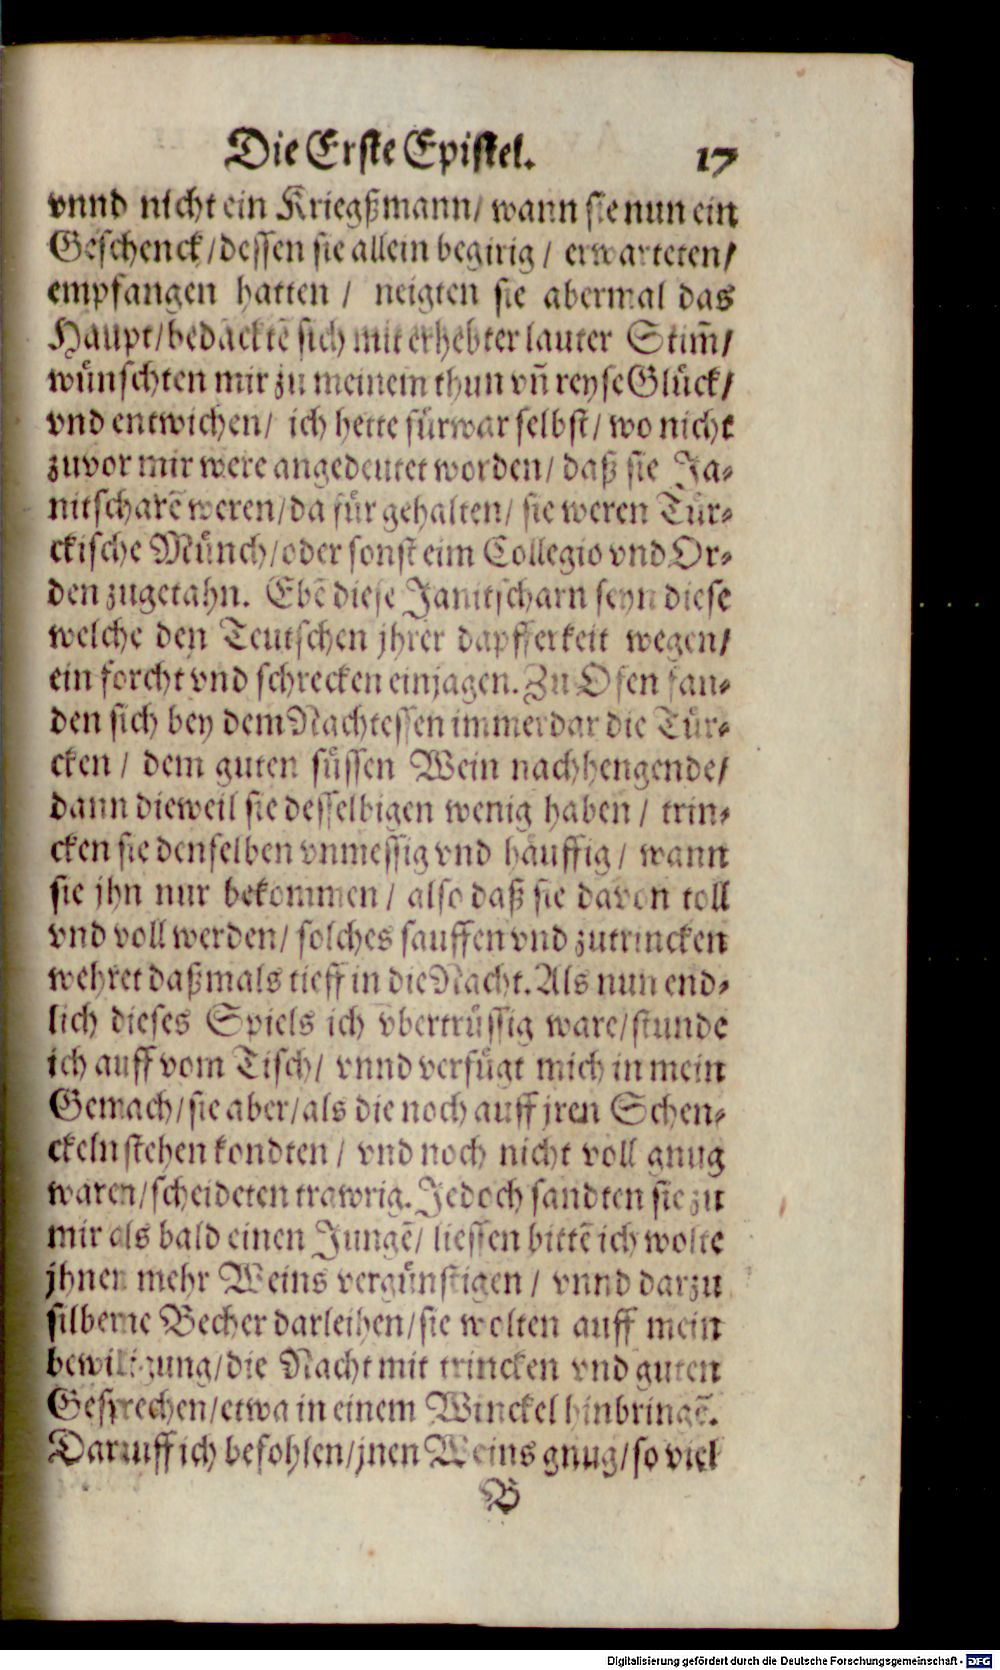 Die Erste Epistel. 17
vnnd nicht ein Kriegßmann/ wann sie nun ein
Geschenck/dessen sie allein begirig/ erwarteten/
empfangen hatten / neigten sie abermal das
Haupt/bedacktē sich mit erhebter lauter Stim̃/
wuͤnschten mir zu meinem thun vñ reyse Gluͤck/
vnd entwichen/ ich hette fuͤrwar selbst/ wo nicht
zuvor mir were angedeutet worden/ daß sie Ja-
nitscharē weren/da fuͤr gehalten/ sie weren Tuͤr-
ckische Muͤnch/oder sonst eim Collegio vnd Or-
den zugetahn. Ebē diese Janitscharn seyn diese
welche den Teutschen jhrer dapfferkeit wegen/
ein forcht vnd schrecken einjagen. Zu Ofen fan-
den sich bey dem Nachtessen immerdar die Tuͤr-
cken / dem guten suͤssen Wein nachhengende/
dann dieweil sie desselbigen wenig haben / trin-
cken sie denselben vnmessig vnd haͤuffig/ wann
sie jhn nur bekommen/ also daß sie davon toll
vnd voll werden/ solches sauffen vnd zutrincken
wehret daßmals tieff in die Nacht. Als nun end-
lich dieses Spiels ich vbertruͤssig ware/stunde
ich auff vom Tisch/ vnnd verfuͤgt mich in mein
Gemach/sie aber/als die noch auff jren Schen-
ckeln stehen kondten / vnd noch nicht voll gnug
waren/scheideten trawrig. Jedoch sandten sie zu
mir als bald einen Jungē/ liessen bittē ich wolte
jhnen mehr Weins verguͤnstigen / vnnd darzu
silberne Becher darleihen/sie wolten auff mein
bewilligung/die Nacht mit trincken vnd guten
Gesprechen/etwa in einem Winckel hinbringē.
Darauff ich befohlen/jnen Weins gnug/so viel
B
Digitalisierung gefördert durch die Deutsche Forschungsgemeinschaft - DFG